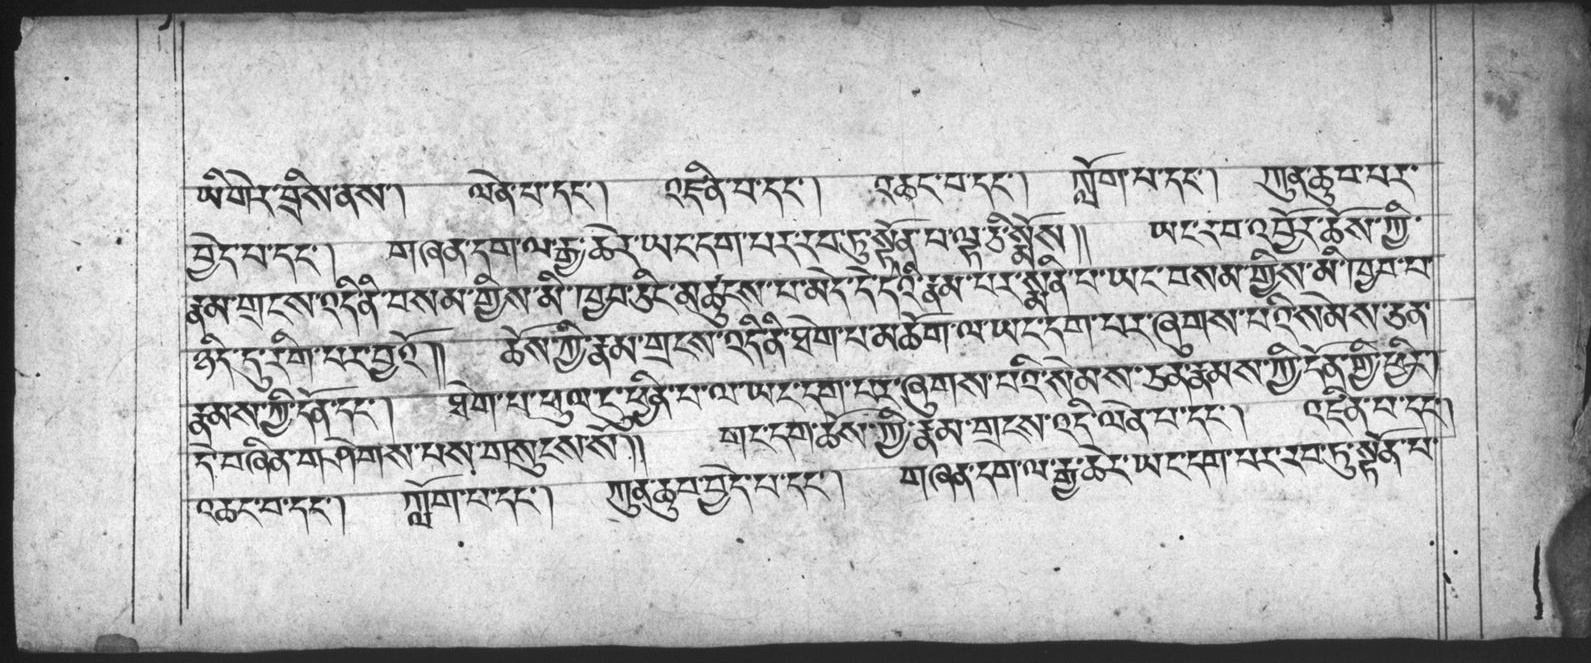 ཡི་གེར་བྲིས་ནས། ལེན་པ་དང་། འཛིན་པ་དང་། འཆང་བ་དང་། ཀློག་པ་དང་། ཀུན་ཆུབ་པར་
བྱེད་པ་དང་། གཞན་དག་ལ་རྒྱ་ཆེར་ཡང་དག་པར་རབ་ཏུ་སྟོན་པ་ལྟ་ཅི་སྨོས།། ཡང་རབ་འབྱོར་ཆོས་ཀྱི་
རྣམ་གྲངས་འདི་ནི་བསམ་གྱིས་མི་ཁྱབ་ཅིང་མཚུངས་པ་མེད་དེ་དེའི་རྣམ་པར་སྨིན་པ་ཡང་བསམ་གྱིས་མི་ཁྱབ་པ་
ཉིད་དུ་རིག་པར་བྱའོ།། ཆོས་ཀྱི་རྣམ་གྲངས་འདི་ནི་ཐེག་པ་མཆོག་ལ་ཡང་དག་པར་ཞུགས་པའི་སེམས་ཅན་
རྣམས་ཀྱི་དོན་དང་། ཐེག་པ་ཕུལ་དུ་ཕྱིན་པ་ལ་ཡང་དག་པར་ཞུགས་པའི་སེམས་ཅན་རྣམས་ཀྱི་དོན་གྱི་ཕྱིར།
དེ་བཞིན་གཤེགས་པས་གསུངས་སོ།། གང་དག་ཆོས་ཀྱི་རྣམ་གྲངས་འདི་ལེན་པ་དང་། འཛིན་པ་དང་།
འཆང་བ་དང་། ཀློག་པ་དང་། ཀུན་ཆུབ་བྱེད་པ་དང་། གཞན་དག་ལ་རྒྱ་ཆེར་ཡང་དག་པར་རབ་ཏུ་སྟོན་པ་